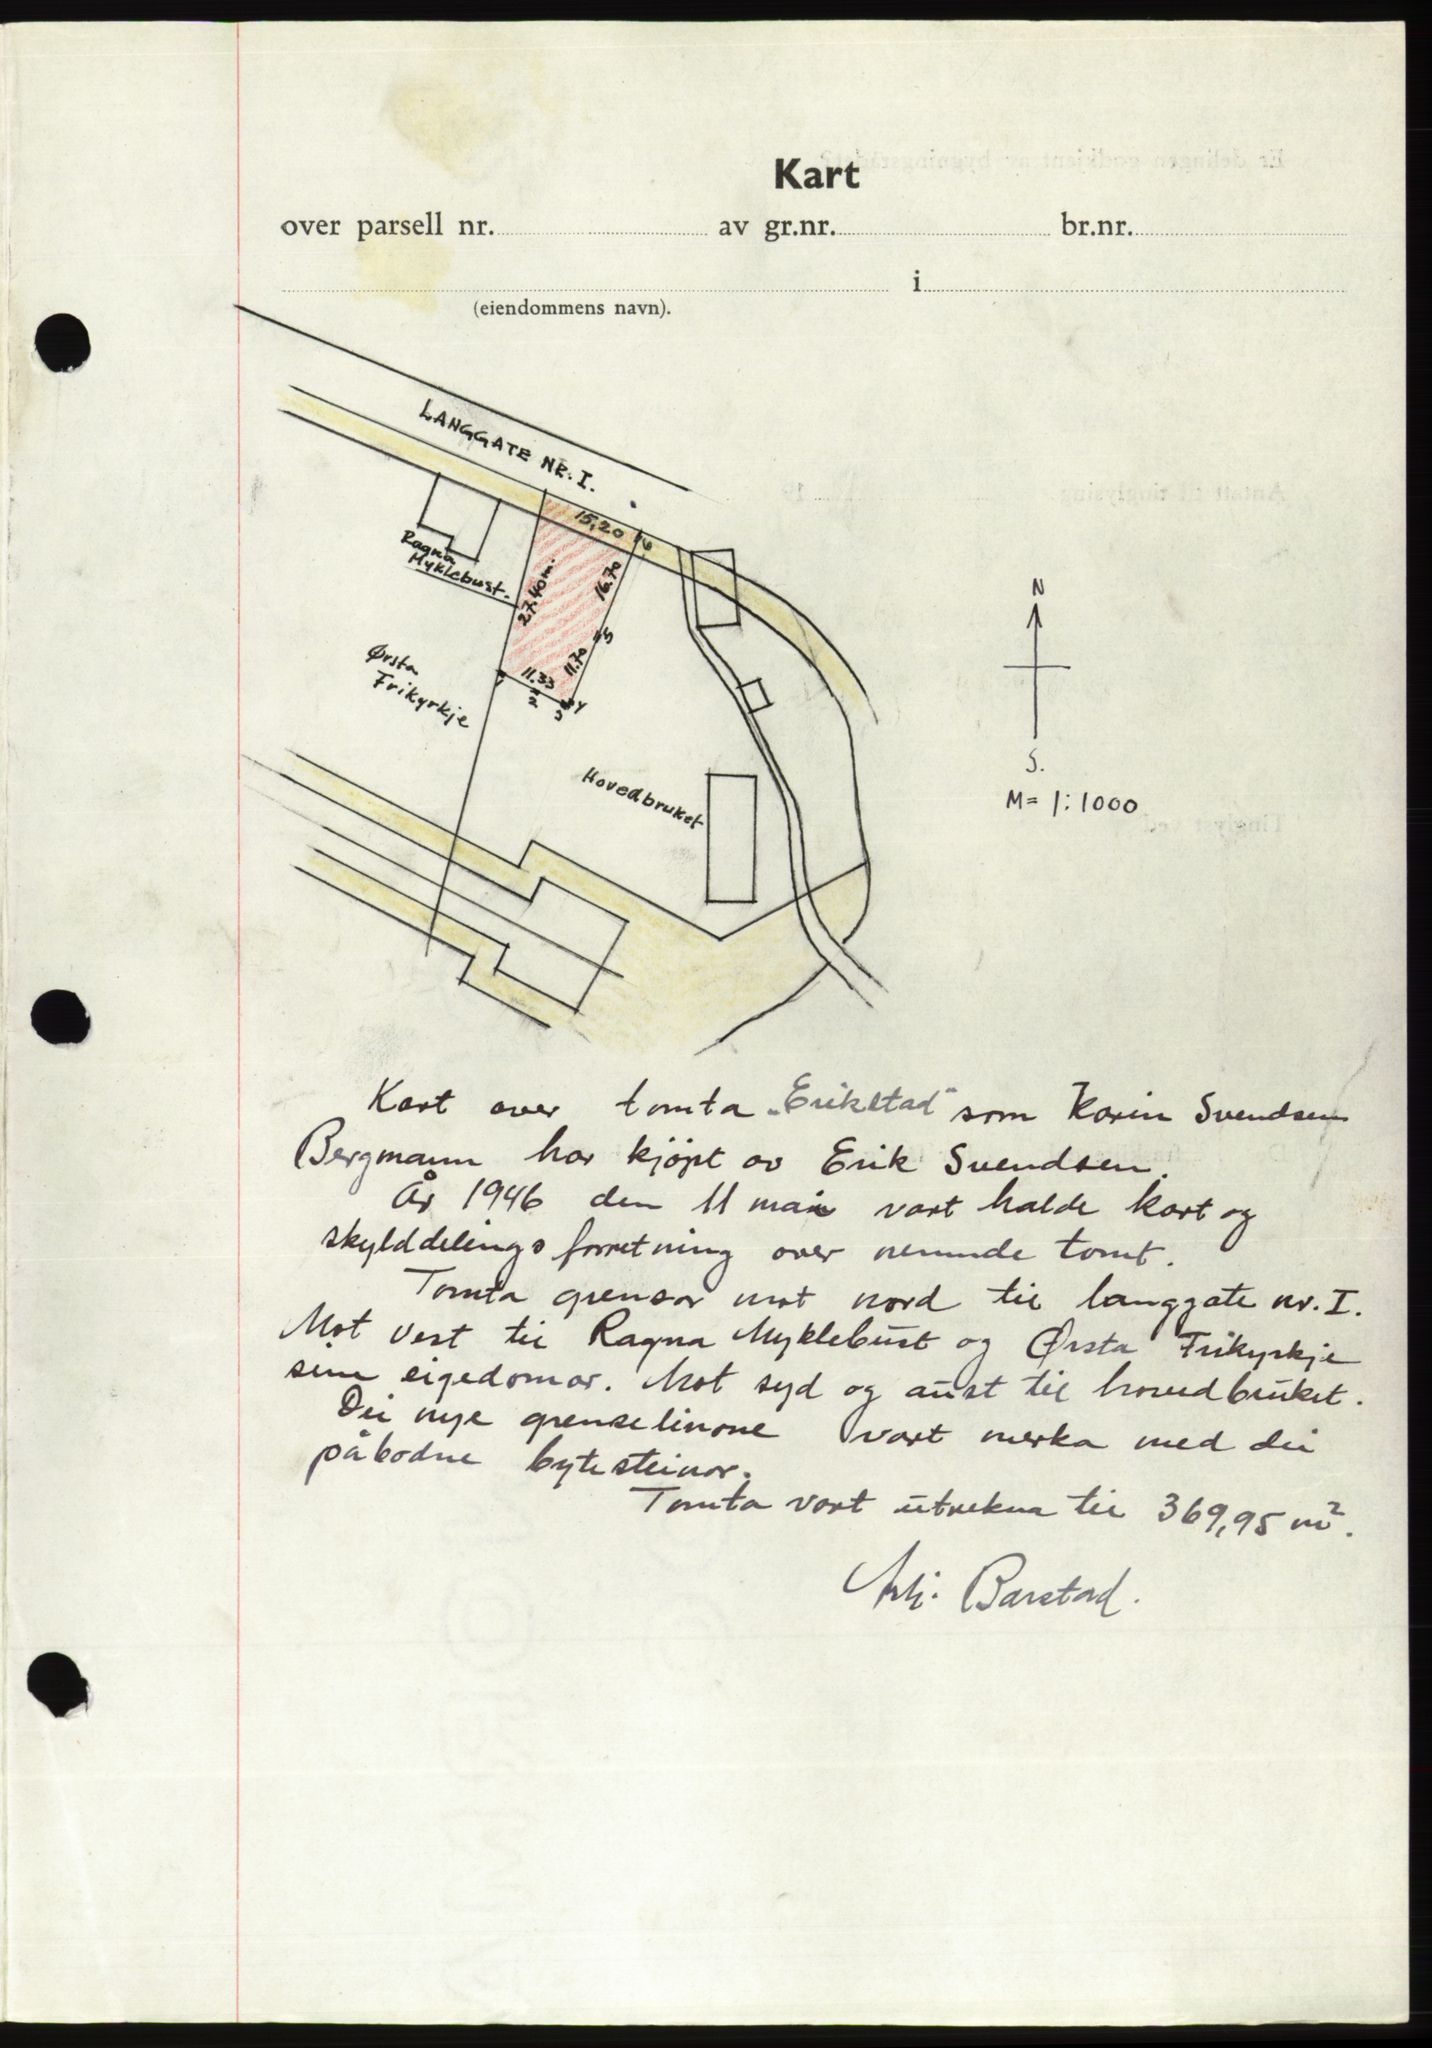 Kart
over parsell nr. av gr.nr. br.nr.
i
(eiendommens navn).
LANGGATE NR. I.
15,20
6
Ragna
Myklebust.
27.40 m.
16.70
5
11.70
11.33
1
2
3
4
Ørsta
Frikyrkje
Hovedbruket
N
S.
M = 1:1000
Kart over tomta „Erikstad" som Karin Svendsen
Bergmann har kjøpt av Erik Svendsen.
År 1946 den 11 mai vart halde kart og
skylddelingsforretning over nemnde tomt.
Tomta grensar mot nord til langgate nr. I.
Mot vest til Ragna Myklebust og Ørsta Frikyrkje
sine eigedomar. Mot syd og aust til hovedbruket.
Dei nye grenselinone vart merka med dei
påbodne bytesteinar.
Tomta vart utrekna til 369,95 m².
Barstad.